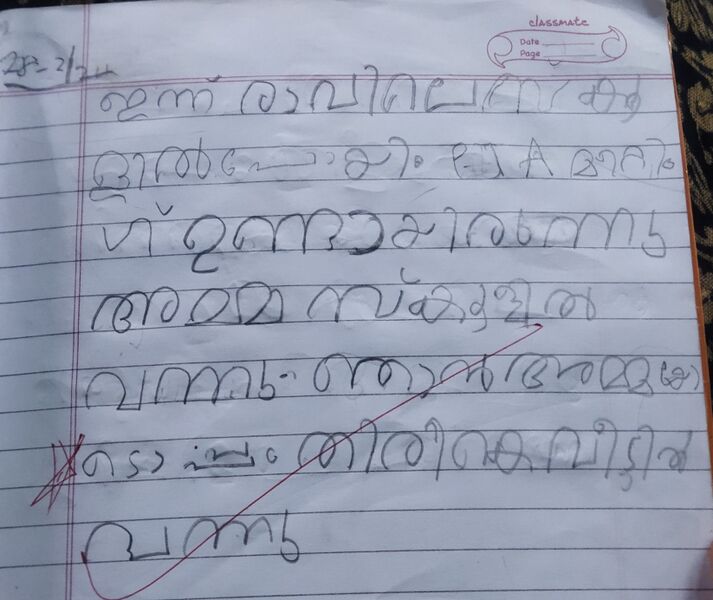 classmate
Date
Page
28-2/24
ഇന്ന് രാവിലെ സ്കൂ
ളിൽ പോയി. PTA മീറ്റിം
ഗ് ഉണ്ടായിരുന്നു
അമ്മ സ്കൂളിൽ
വന്നു. ഞാൻ അമ്മ(യോ)
ടൊപ്പം തിരികെ വീട്ടിൽ
വന്നു